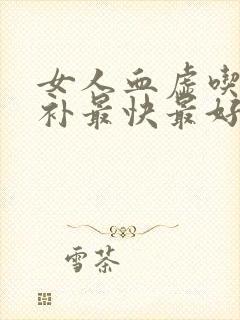 女人血虚喫
补最快最好
雪茶